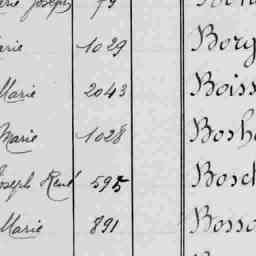 Joseph 79
Marie 1029 Borg
Marie 2043 Boiss
Marie 1028 Bosh
Joseph René 595 Bosc
Marie 891 Bosso